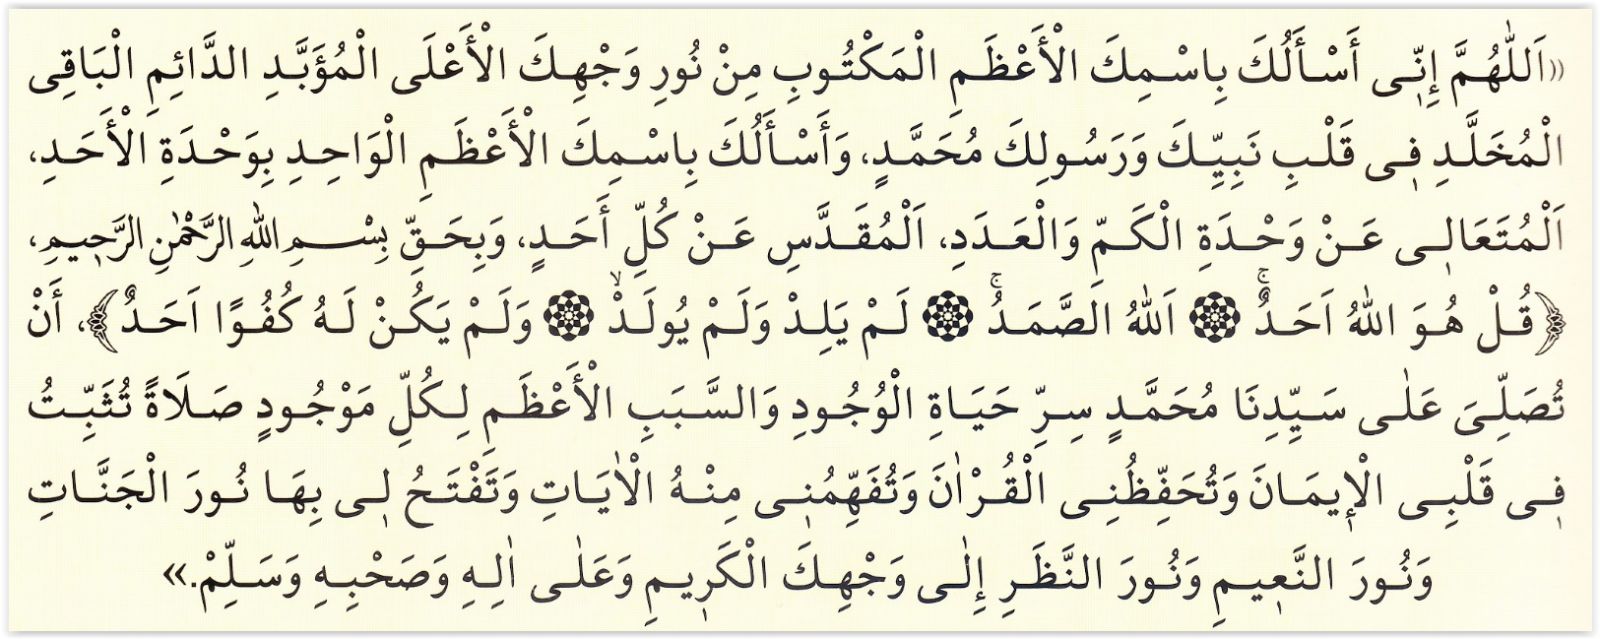 «اَللّٰهُمَّ إِنِّي أَسْأَلُكَ بِاسْمِكَ الْأَعْظَمِ الْمَكْتُوبِ مِنْ نُورِ وَجْهِكَ الْأَعْلَى الْمُؤَبَّدِ الدَّائِمِ الْبَاقِي
الْمُخَلَّدِ فِي قَلْبِ نَبِيِّكَ وَرَسُولِكَ مُحَمَّدٍ، وَأَسْأَلُكَ بِاسْمِكَ الْأَعْظَمِ الْوَاحِدِ بِوَحْدَةِ الْأَحَدِ،
اَلْمُتَعَالِي عَنْ وَحْدَةِ الْكَمِّ وَالْعَدَدِ، اَلْمُقَدَّسِ عَنْ كُلِّ أَحَدٍ، وَبِحَقِّ بِسْمِ اللهِ الرَّحْمٰنِ الرَّحِيمِ،
﴿قُلْ هُوَ اللهُ اَحَدٌۚ ۞ اَللهُ الصَّمَدُۚ ۞ لَمْ يَلِدْ وَلَمْ يُولَدْۙ ۞ وَلَمْ يَكُنْ لَهُ كُفُوًا اَحَدٌ﴾، أَنْ
تُصَلِّيَ عَلٰى سَيِّدِنَا مُحَمَّدٍ سِرِّ حَيَاةِ الْوُجُودِ وَالسَّبَبِ الْأَعْظَمِ لِكُلِّ مَوْجُودٍ صَلَاةً تُثَبِّتُ
فِي قَلْبِي الْإِيمَانَ وَتُحَفِّظُنِي الْقُرْاٰنَ وَتُفَهِّمُنِي مِنْهُ الْاٰيَاتِ وَتَفْتَحُ لِي بِهَا نُورَ الْجَنَّاتِ
وَنُورَ النَّعِيمِ وَنُورَ النَّظَرِ إِلٰى وَجْهِكَ الْكَرِيمِ وَعَلٰى اٰلِهِ وَصَحْبِهِ وَسَلِّمْ.»